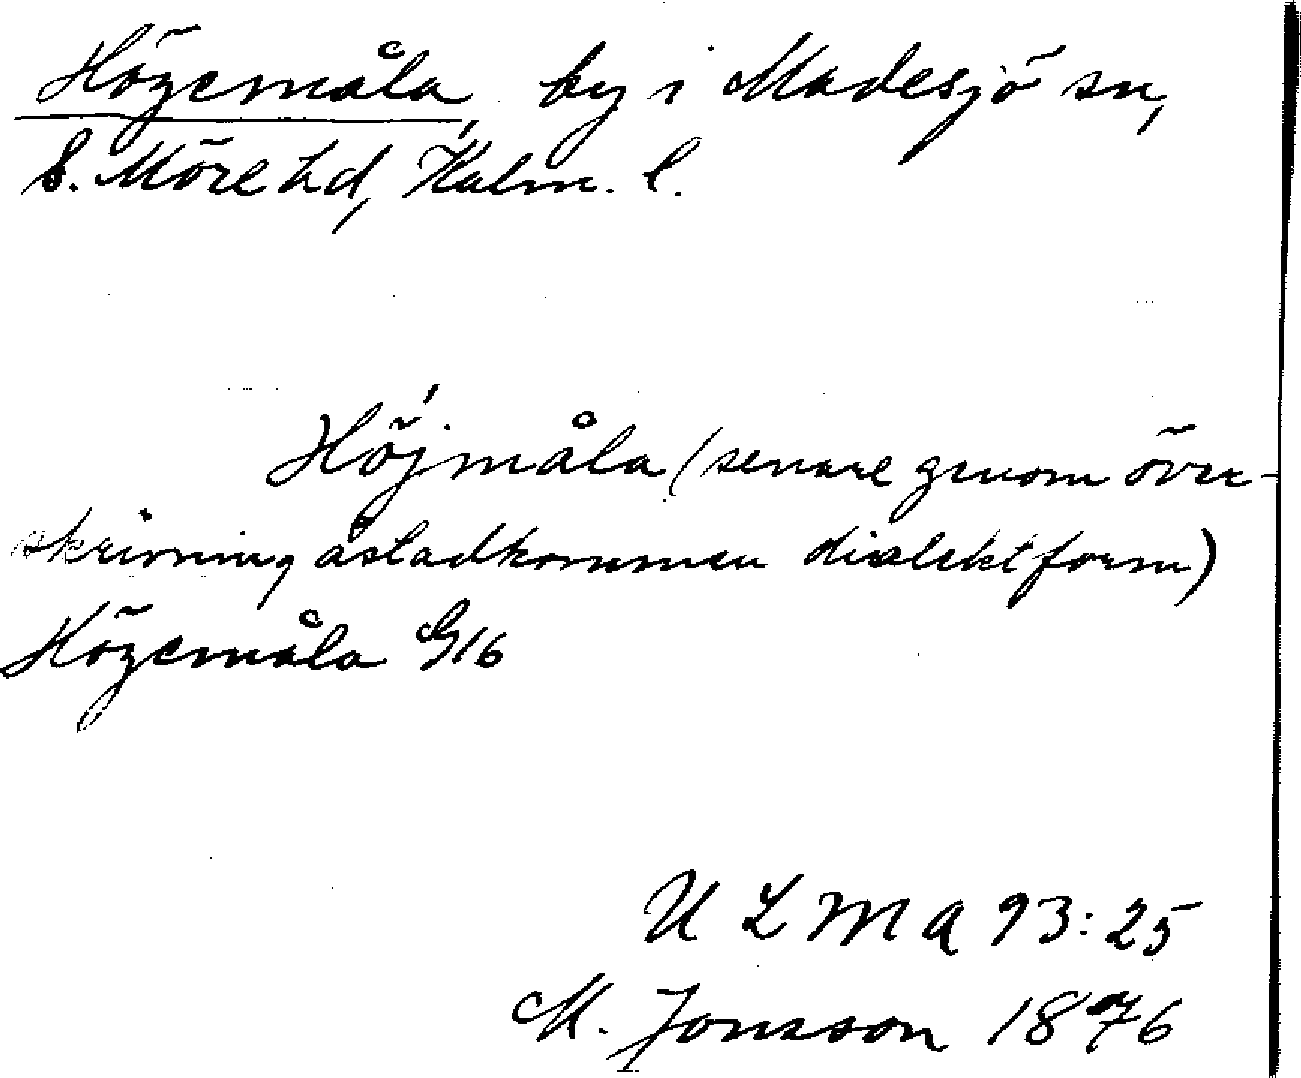 Högemåla, by i Madesjö sn,
S. Möre hd, Kalm. l.
Höjmåla (senare genom över-
skrivning åstadkommen dialektform)
Högemåla G16
ULMA 93:25
M. Jonsson 1876